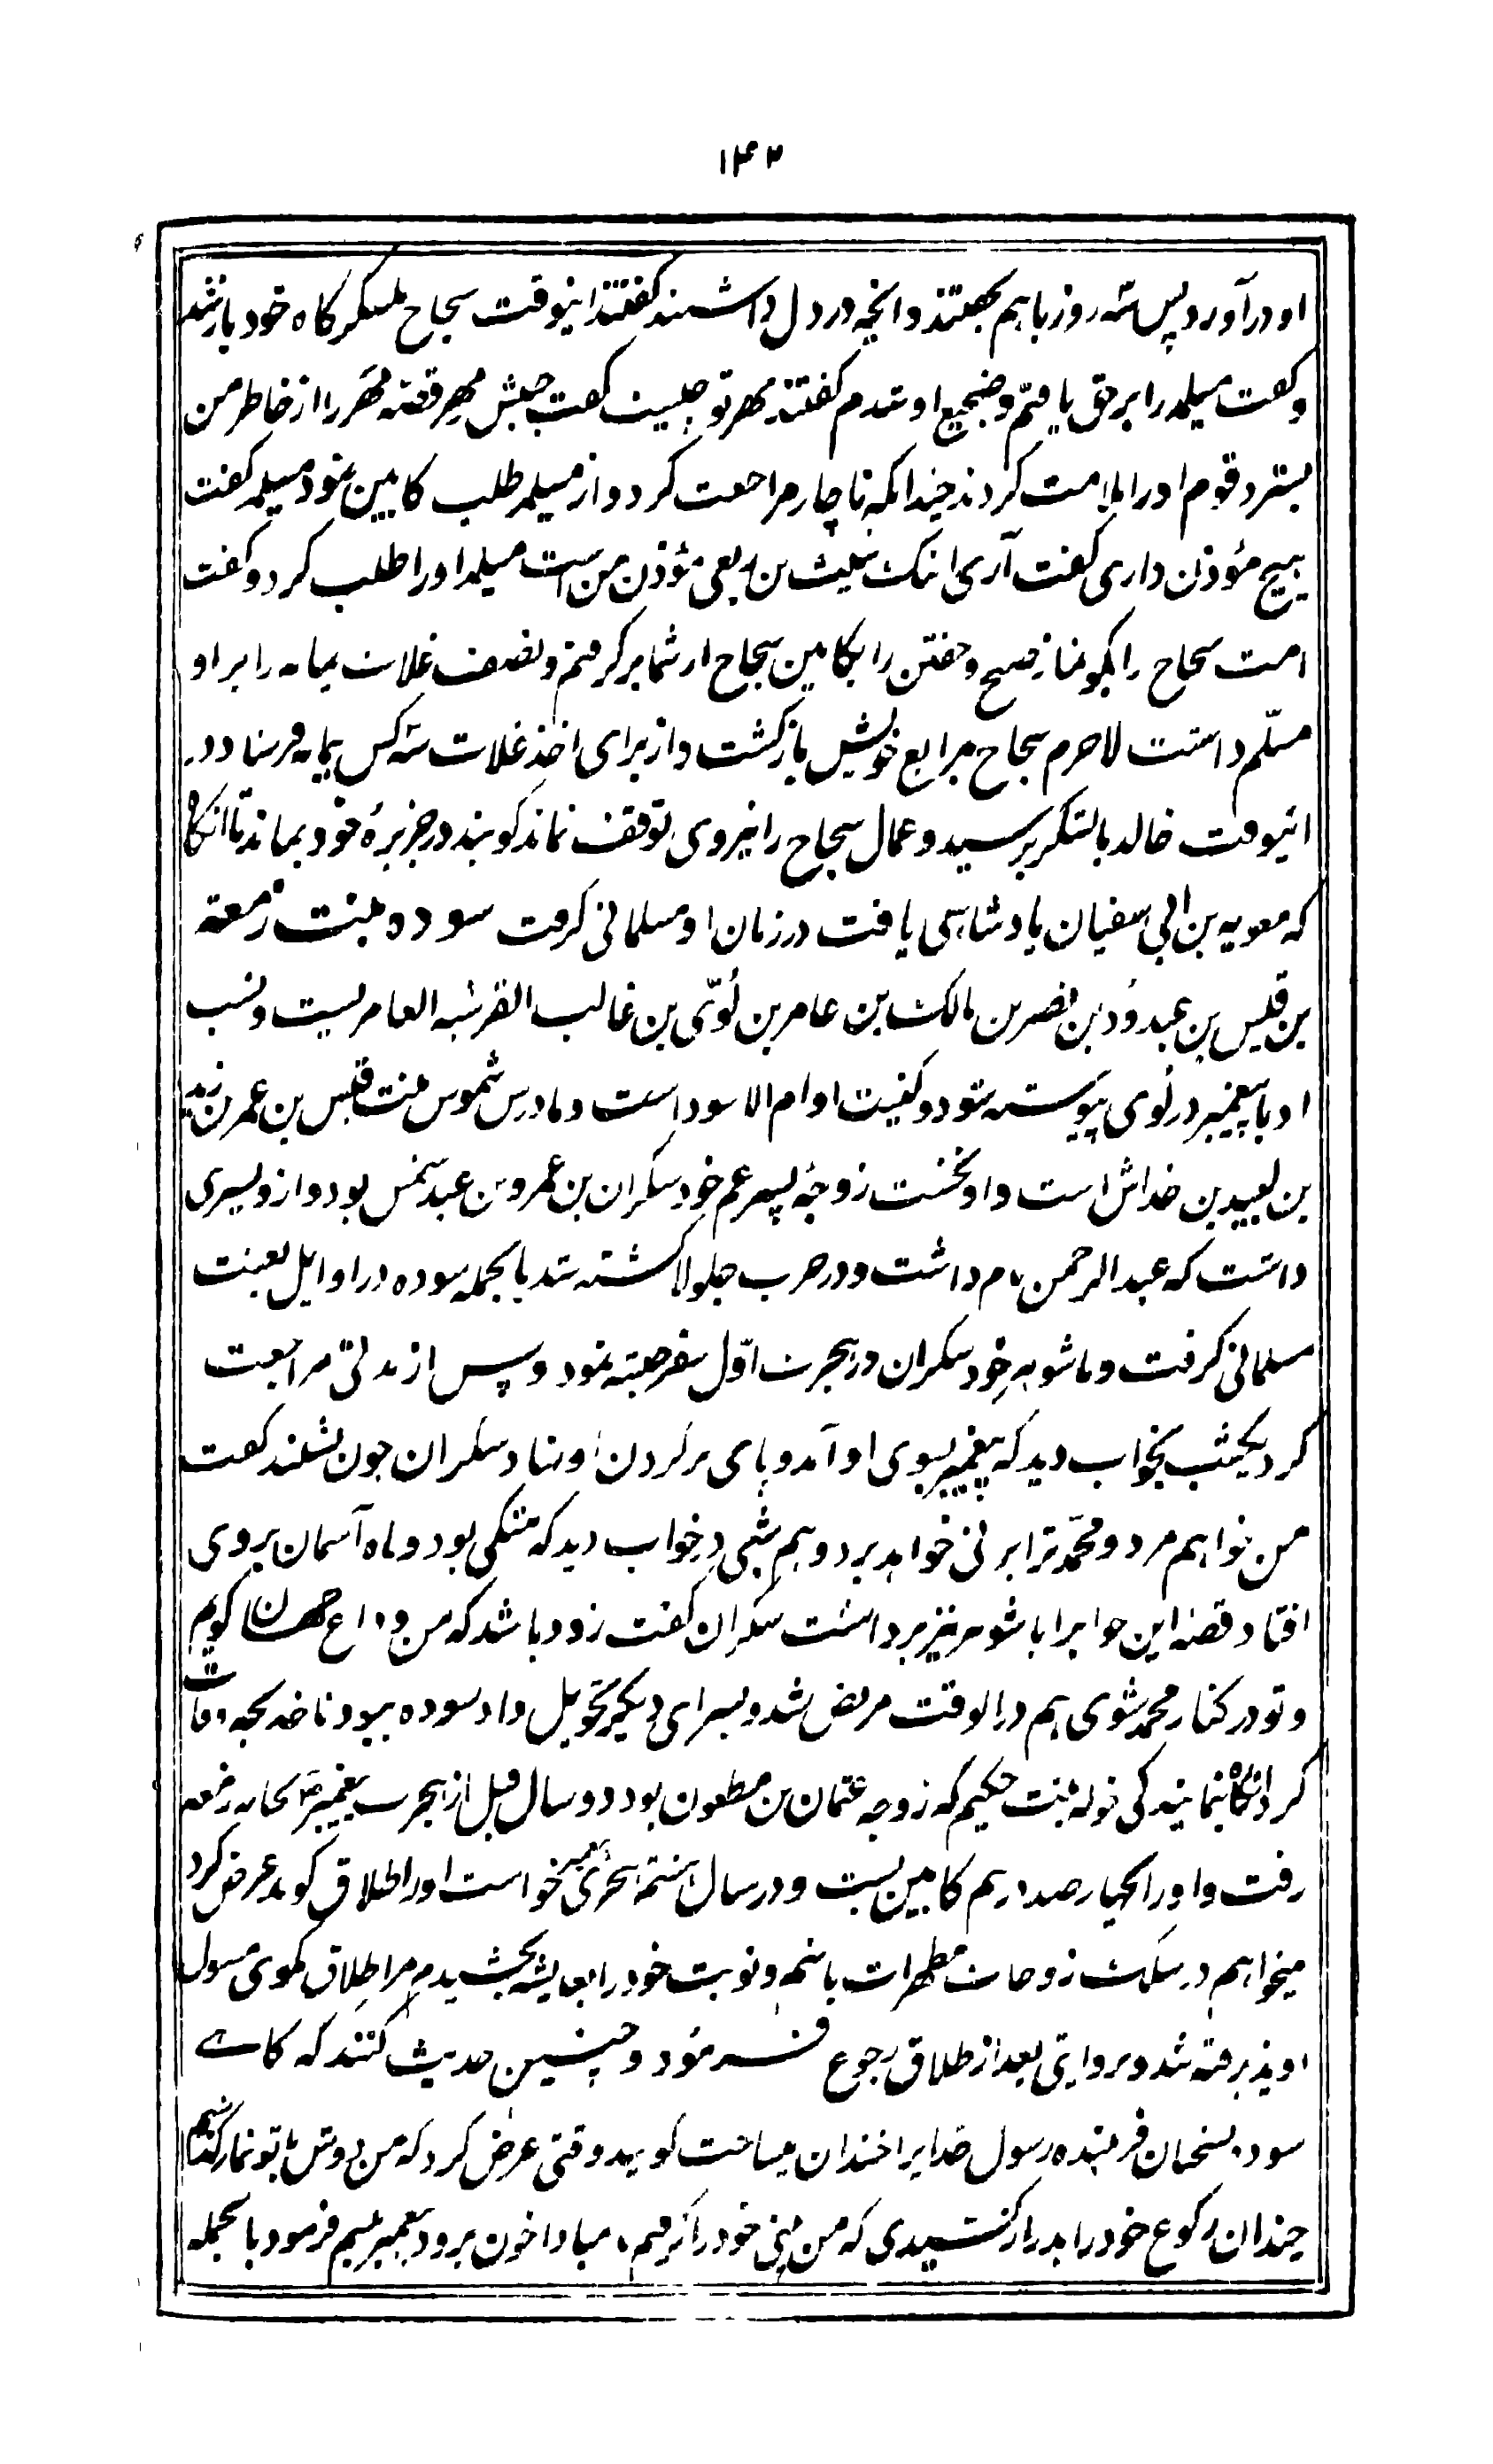 ۱۴۲
او درآورد پس سه روز باهم بخفتند و انچه در دل داشتند کفتند اینوقت سجاح بلشکرکاه خود باز شد
و کفت مسیلمه را بر حق یافتم و ضجیع او شدم کفتند مهر تو چیست کفت جنبش مهر قصّه مهر را از خاطر من
بسترد قوم او را ملامت کردند چندانکه ناچار مراجعت کرد و از مسیلمه طلب کابین نمود مسیلمه کفت
هیچ مؤذن داری کفت آری اینک شبث بن ربعی مؤذن من است مسیلمه او را طلب کرد و کفت
امت سجاح را بکو نماز صبح و خفتن را بکابین سجاح از شما برکرفتم و نصف غلات یمامه را بر او
مسلّم داشت لاجرم سجاح بمرابع خویش بازکشت و از برای اخذ غلات سه کس بیمامه فرستاد در
اینوقت خالد با لشکر برسید و عمال سجاح را نیروی توقف نماند کویند در جزیرهٔ خود بماند تا انکاه
که معویه بن ابی سفیان پادشاهی یافت در زمان او مسلمانی کرفت سوده بنت زمعه
بن قیس بن عبدود بن نصر بن مالک بن عامر بن لُویّ بن غالب القرشیه العامریست و نسب
او با پیغمبر در لُوی پیوسته شود و کنیت او ام الاسود است و مادرش شموس بنت قیس بن عمر بن زید
بن لبید بن خداش است و او نخست زوجهٔ پسر عم خود سکران بن عمرو بن عبد شمس بود و از و پسری
داشت که عبد الرحمن نام داشت و در حرب جلولا کشته شد بالجمله سوده در اوایل بعثت
مسلمانی کرفت و با شوهر خود سکران در هجرت اوّل سفر حبشه نمود و پس از مدتی مراجعت
کرد یکشب بخواب دید که پیغمبر بسوی او آمد و پای بر کردن او نهاد سکران چون بشنید کفت
من خواهم مرد و محمّد ترا بزنی خواهد برد و هم شبی در خواب دید که متکی بود و ماه آسمان بروی
افتاد قصه این خوابرا با شوهر نیز برداشت سکران کفت زود باشد که من وداع جهان کویم
و تو در کنار محمد شوی هم در الوقت مریض شد و بسرای دیکر تحویل داد سوده ببود تا خدیجه وفات
کرد انکاه بنمایندکی خوله بنت حکیم که زوجه عثمان بن مظعون بود دو سال قبل از هجرت پیغمبر ص بخانه زمعه
رفت و او را بچهار صد درهم کابین بست و در سال هشتم هجری پیغمبر خواست او را طلاق کوید عرض کرد
میخواهم در سلک زوجات مطهرات باشم و نوبت خود را بعایشه بخشیدم مرا طلاق مکوی مسئول
او پذیرفته شد و بروایتی بعد از طلاق رجوع فرمود و چنین حدیث کنند که کاهی
سوده بسخنان فریبنده رسول خدایرا خندان میساخت کویند وقتی عرض کرد که من دوش با تو نماز کذاشتم
چندان رکوع خود را بدراز کشیدی که من بینی خود را کرفتم مبادا خون برود پیغمبر تبسم فرمود بالجمله